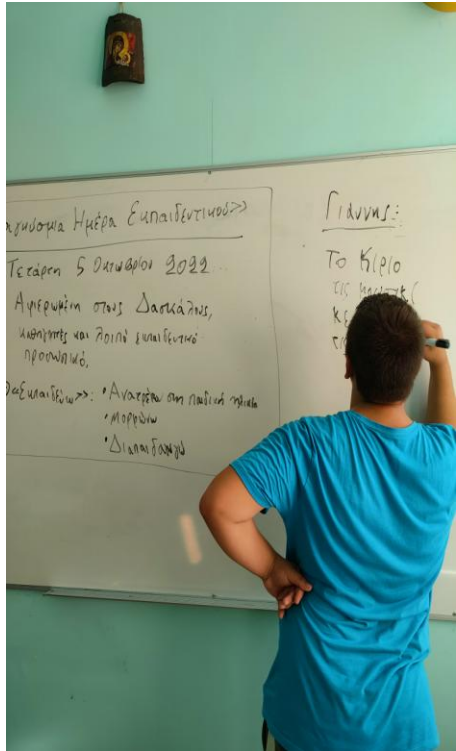 Ημέρα Εκπαιδευτικού>>
Τετάρτη 5 Οκτωβρίου 2022..
Αφιερωμένη στους Δασκάλους,
καθηγητές και λοιπό εκπαιδευτικό
προσωπικό.
<<Εκπαιδεύω>>: • Ανατρέφω στη παιδική ηλικία
• μορφώνω
• Διαπαιδαγωγώ
Γιάννης:
Το κιριο
τις